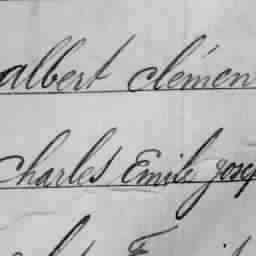 albert clémen
charles Emile josep